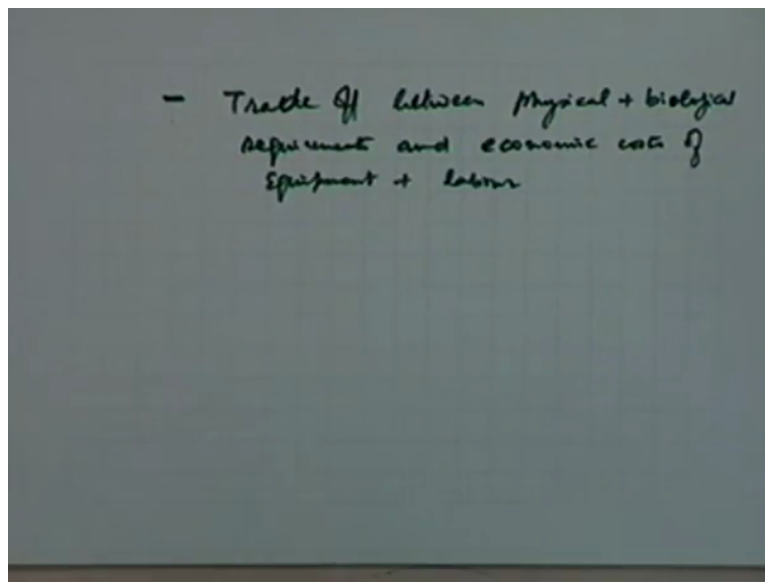 - Trade Off between physical + biological
requirements and economic costs of
Equipment + labour